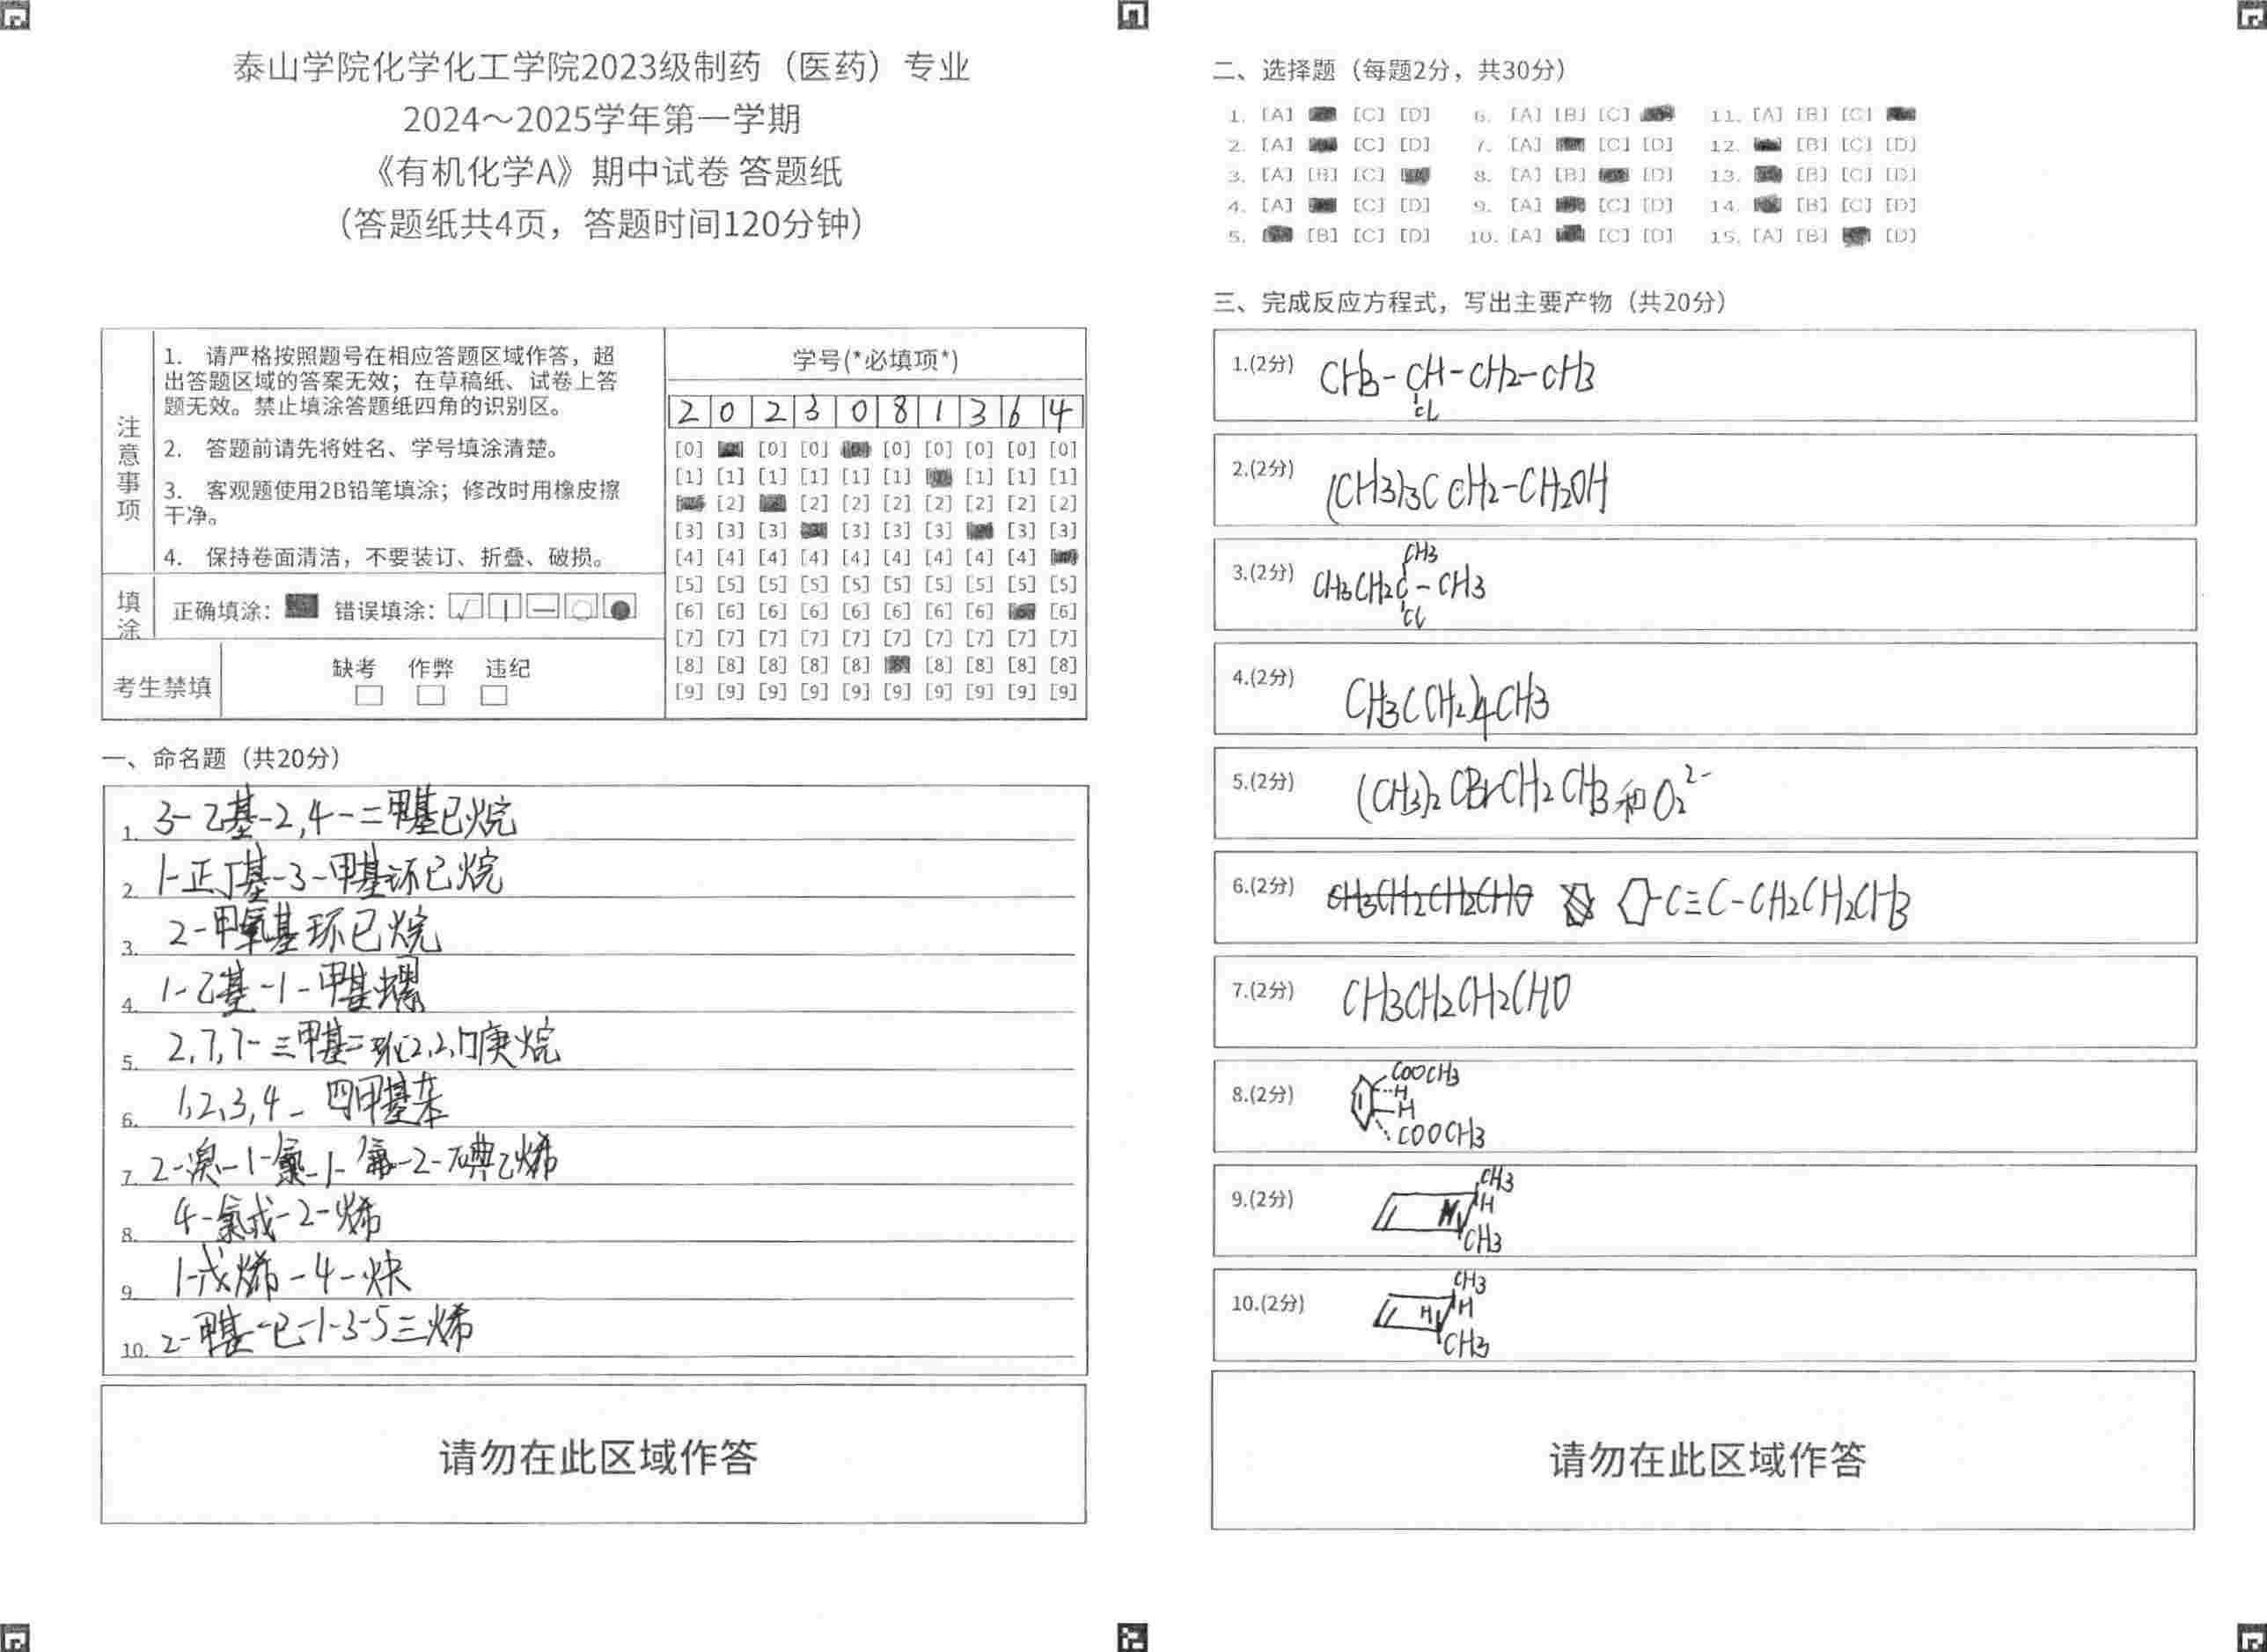 泰山学院化学化工学院2023级制药（医药）专业
2024～2025学年第一学期
《有机化学A》期中试卷 答题纸
（答题纸共4页，答题时间120分钟）
注意事项
1. 请严格按照题号在相应答题区域作答，超
出答题区域的答案无效；在草稿纸、试卷上答
题无效。禁止填涂答题纸四角的识别区。
2. 答题前请先将姓名、学号填涂清楚。
3. 客观题使用2B铅笔填涂；修改时用橡皮擦
干净。
4. 保持卷面清洁，不要装订、折叠、破损。
填涂
正确填涂： 错误填涂：
考生禁填
缺考 作弊 违纪
学号(*必填项*)
2 0 2 3 0 8 1 3 6 4
[0] [0] [0] [0] [0] [0] [0] [0]
[1] [1] [1] [1] [1] [1] [1] [1] [1]
[2] [2] [2] [2] [2] [2] [2] [2]
[3] [3] [3] [3] [3] [3] [3] [3]
[4] [4] [4] [4] [4] [4] [4] [4] [4]
[5] [5] [5] [5] [5] [5] [5] [5] [5] [5]
[6] [6] [6] [6] [6] [6] [6] [6] [6]
[7] [7] [7] [7] [7] [7] [7] [7] [7] [7]
[8] [8] [8] [8] [8] [8] [8] [8] [8]
[9] [9] [9] [9] [9] [9] [9] [9] [9] [9]
一、命名题（共20分）
1. 3-乙基-2,4-二甲基已烷
2. 1-正丁基-3-甲基环已烷
3. 2-甲氧基环已烷
4. 1-乙基-1-甲基螺
5. 2,7,7-三甲基二环[2,2,1]庚烷
6. 1,2,3,4-四甲基苯
7. 2-溴-1-氯-1-氟-2-碘乙烯
8. 4-氯戊-2-烯
9. 1-戊烯-4-炔
10. 2-甲基-已-1-3-5三烯
请勿在此区域作答
二、选择题（每题2分，共30分）
1. [A] [C] [D] 6. [A] [B] [C] 11. [A] [B] [C]
2. [A] [C] [D] 7. [A] [C] [D] 12. [B] [C] [D]
3. [A] [B] [C] 8. [A] [B] [D] 13. [B] [C] [D]
4. [A] [C] [D] 9. [A] [C] [D] 14. [B] [C] [D]
5. [B] [C] [D] 10. [A] [C] [D] 15. [A] [B] [D]
三、完成反应方程式，写出主要产物（共20分）
1.(2分) CH3-CH-CH2-CH3
CL
2.(2分) (CH3)3CCH2-CH2OH
CH3
3.(2分) CH3CH2C-CH3
CL
4.(2分) CH3(CH2)4CH3
5.(2分) (CH3)2CBrCH2CH3和O2 2-
6.(2分) CH3CH2CH2CHO -C≡C-CH2CH2CH3
7.(2分) CH3CH2CH2CHO
8.(2分) COOCH3
H
H
COOCH3
9.(2分) CH3
H H
CH3
10.(2分) CH3
H H
CH3
请勿在此区域作答